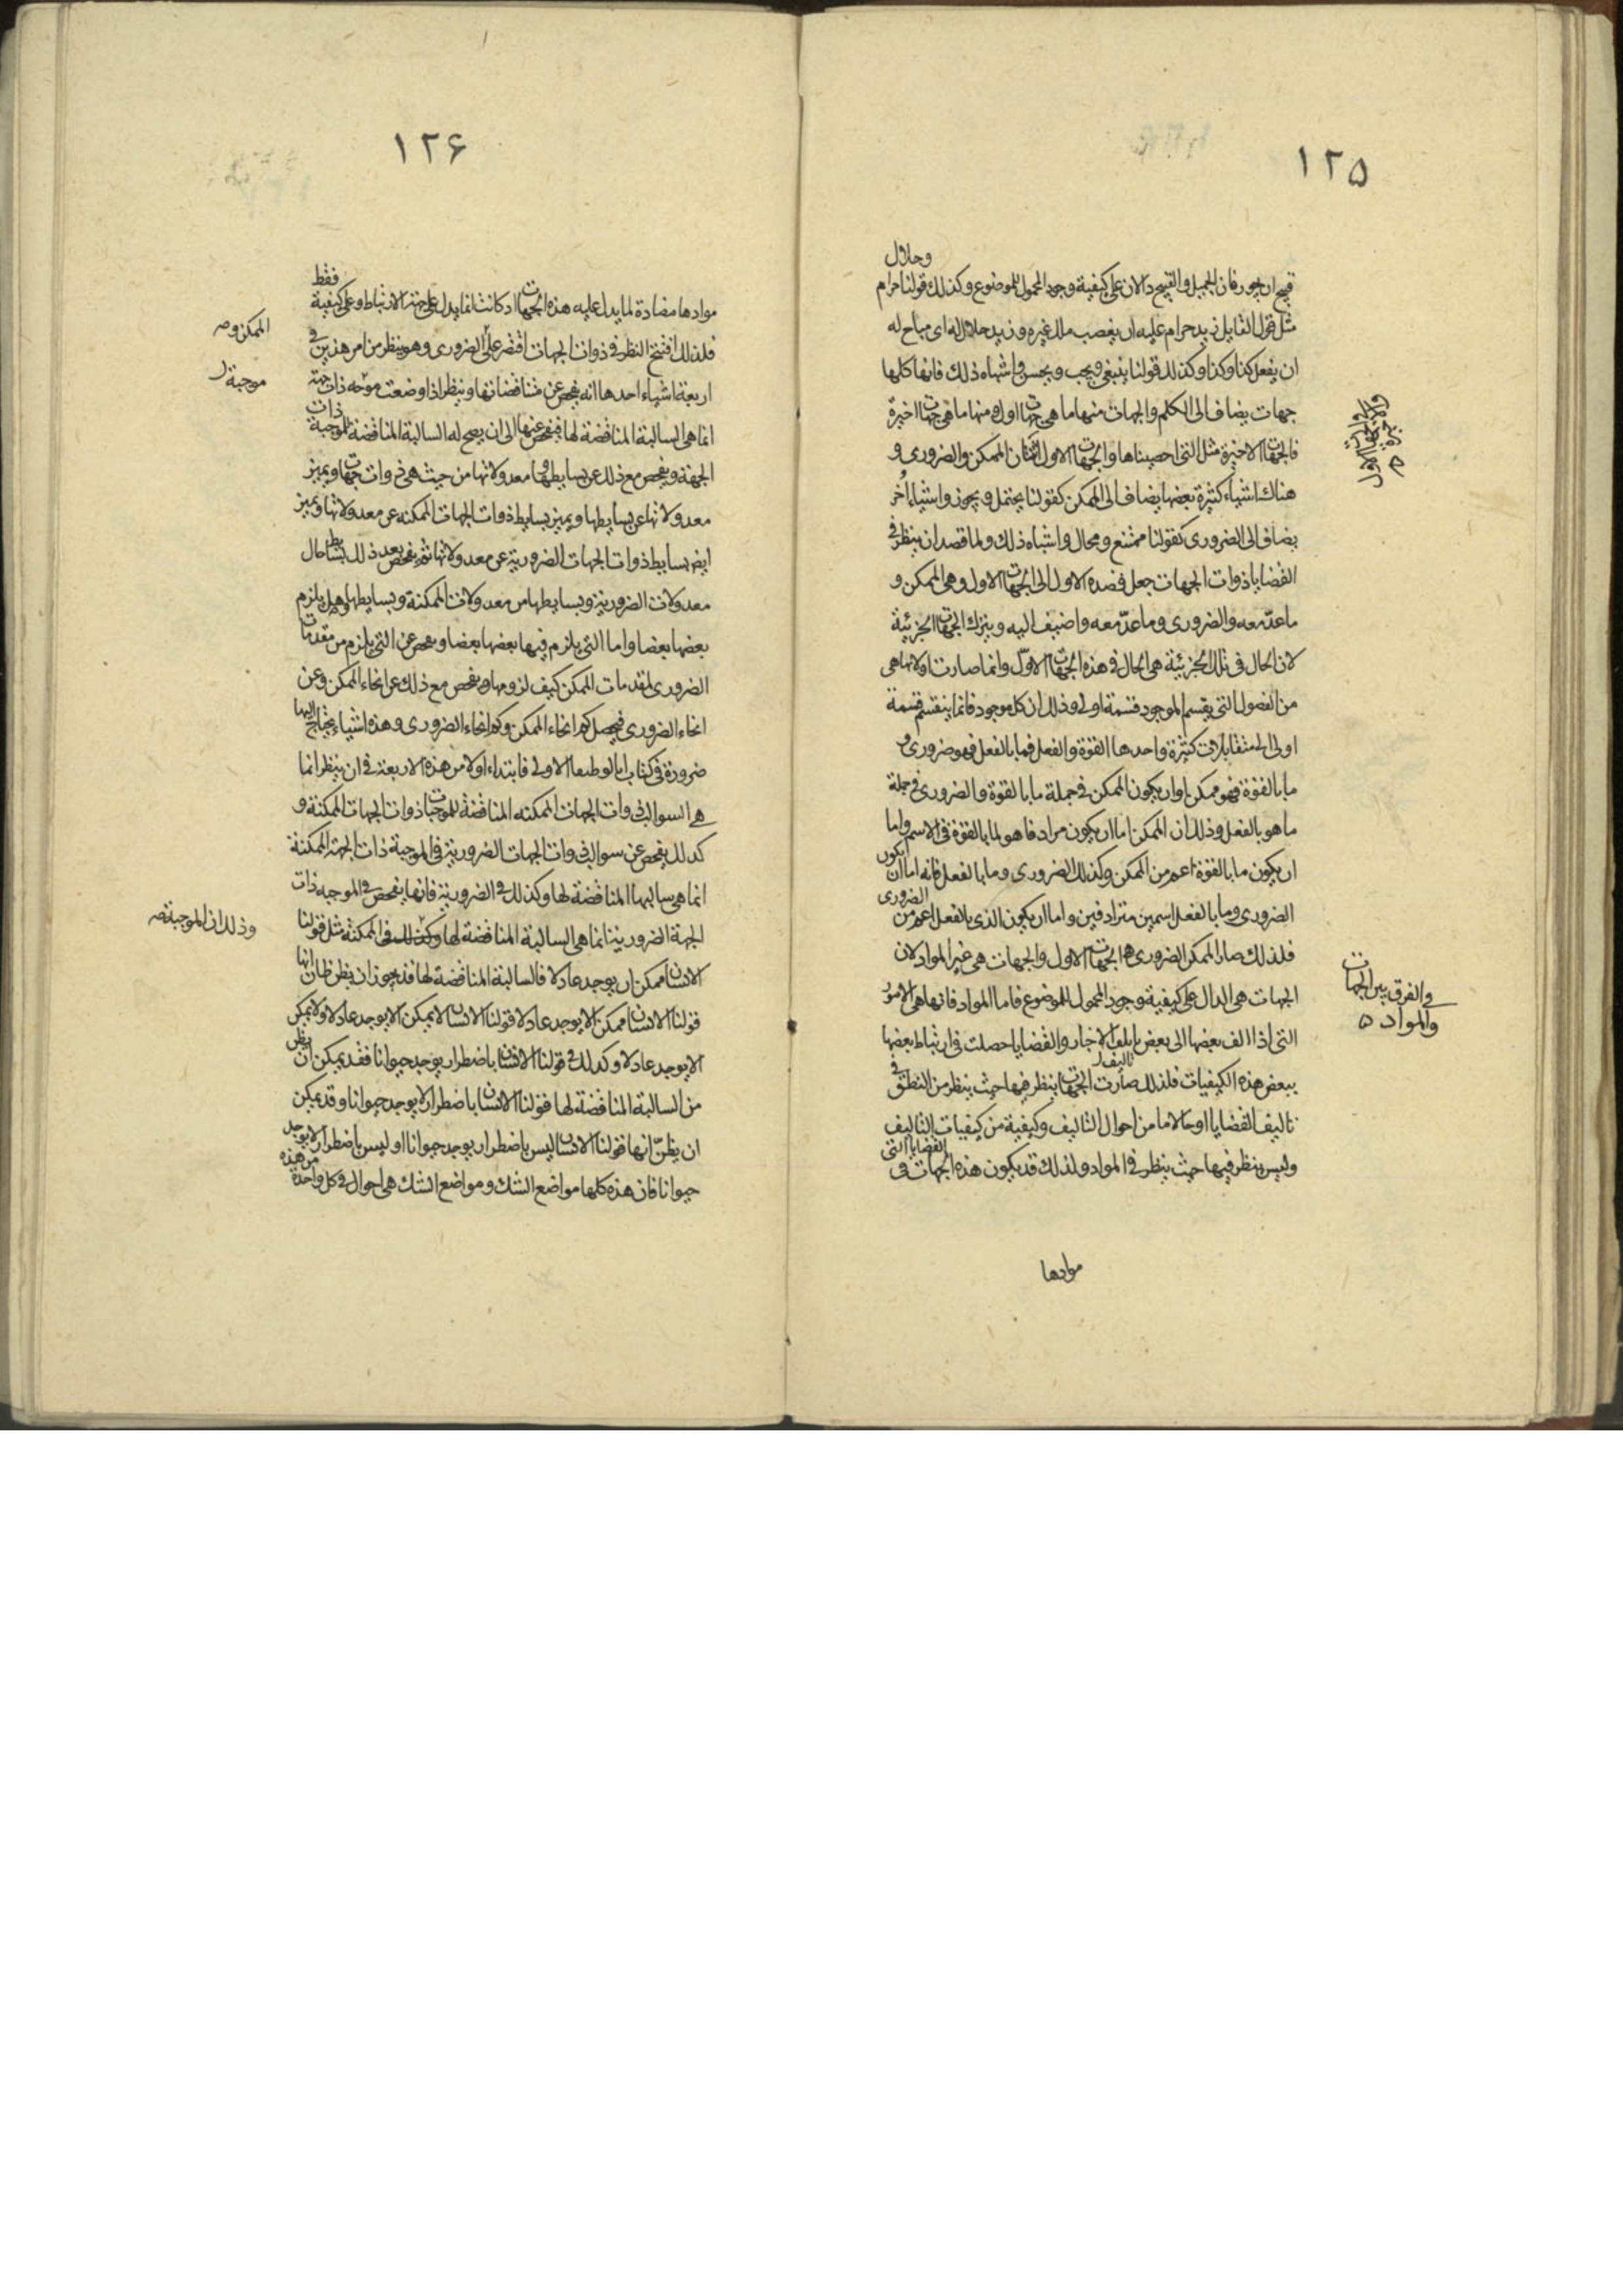 ١٢٥
قبيح ان يجور فان الجميل والقبيح دالان على كيفية وجود المحمول للموضوع وكذلك قولنا حرام وحلال
مثل قول القايل زيد حرام عليه ان يغصب مال غيره وزيد حلال له اى مباح له
ان يفعل كذا وكذا وكذلك قولنا ينبغى ويجب ويحسن واشباه ذلك فانها كلها
جهات يضاف الى الكلم والجهات منها ما هى جهات اول ومنها ما هى جهات اخيرة
فالجهات الاخيرة مثل التى احصيناها والجهات الاول اثنتان الممكن والضرورى و
هناك اشياء كثيرة بعضها يضاف الى الممكن كقولنا يحتمل ويجوز واشياء اُخر
يضاف الى الضرورى كقولنا ممتنع ومحال واشباه ذلك ولما قصد ان ينظر فى
القضايا ذوات الجهات جعل قصده الاول الى الجهات الاول وهى الممكن و
ما عدّ معه والضرورى وما عدّ معه واضيف اليه ويترك الجهات الجزئية
لان الحال فى تلك الجزئية هى الحال فى هذه الجهات الاول وانما صارت اولا لانها هى
من الفصول التى يقسم الموجود قسمة اولى وذلك ان كل موجود فانما ينقسم قسمة
اولى الى متقابلات كثيرة واحدها القوة والفعل فما بالفعل فهو ضرورى و
ما بالقوة فهو ممكن او ان يكون الممكن فى جملة ما بالقوة والضرورى فى جملة
ما هو بالفعل وذلك ان الممكن اما ان يكون مرادفا هو لما بالقوة فى الاسم واما
ان يكون ما بالقوة اعم من الممكن وكذلك الضرورى وما بالفعل فانه اما ان يكون
الضرورى وما بالفعل اسمين مترادفين واما ان يكون الذى بالفعل اعم من الضرورى
فلذلك صار الممكن الضرورى هما الجهات الاول والجهات هى غير المواد لان
الجهات هى الدال على كيفية وجود المحمول للموضوع فاما المواد فانها هى الامور
التى اذا الف بعضها الى بعض الاخبار والقضايا حصلت فى ارتباط بعضها
ببعض هذه الكيفيات فلذلك صارت الجهات ينظر فيها حيث ينظر من النطق فى
تاليف القضايا او حالا ما من احوال التاليف وكيفية من كيفيات التاليف
وليس ينظر فيها حيث ينظر فى المواد ولذلك قد يكون هذه الجهات فى القضايا التى
موادها
فى الفرق بين الجهات
والمواد
١٢۶
موادها مضادة لما يدل عليه هذه الجهات اذ كانت انما يدل على جهة الارتباط وعلى كيفية فقط
فلذلك افتتح النظر فى ذوات الجهات اقتصر على الضرورى وهو ينظر من امر هذين فى
اربعة اشياء احدها انه يفحص عن متناقضاتها وينظر اذا وضعت موجبة ذات جهة
انما هى السالبة المناقضة لها فيفحص عنها الى ان يصح له السالبة المناقضة للموجبة ذات
الجهة ويفحص مع ذلك عن بسايطها ومعدولاتها من حيث هى ذوات جهات ويميز
معدولاتها عن بسايطها ويميز بسايط ذوات الجهات الممكنه عن معدولاتها ويميز
ايضا بسايط ذوات الجهات الضرورية عن معدولاتها ثم يفحص بعد ذلك حال
معدولات الضرورية وبسايطها من معدولات الممكنة وبسايطها وهل يلزم
بعضها بعضا واما التى يلزم فيها بعضها بعضا ويفحص عن التى يلزم من مقدمات
الضرورى لمقدمات الممكن كيف لزومها ويفحص مع ذلك عن انحاء الممكن وعن
انحاء الضرورى فيحصل كم انحاء الممكن وكم انحاء الضرورى وهذه اشياء يحتاج اليها
ضرورة فى كتاب انالوطيقا الاولى فابتداء اولا من هذه الاربعة فى ان ينظر انما
هى السوالب ذوات الجهات الممكنه المناقضة للموجبات ذوات الجهات الممكنة و
كذلك يفحص عن سوالب ذوات الجهات الضرورية فى الموجبة ذات الجهة الممكنة
انما هى سالبها المناقضة لها وكذلك فى الضرورية فانها يفحص فى الموجبه ذات
الجهة الضرورية انما هى السالبة المناقضة لها وكذلك فى الممكنة مثل قولنا
الانسان ممكن ان يوجد عادلا فالسالبة المناقضة لها قد يجوز ان يظن ظان انها
قولنا الانسان ممكن الا يوجد عادلا قولنا الانسان لا يمكن الا يوجد عادلا ولا يمكن
الا يوجد عادلا وكذلك فى قولنا الانسان باضطرار يوجد حيوانا فقد يمكن ان يظن
من السالبة المناقضة لها قولنا الانسان باضطرار لا يوجد حيوانا وقد يمكن
ان يظنّ انها قولنا الانسان ليس باضطرار يوجد حيوانا او ليس باضطرار لا يوجد
حيوانا فان هذه كلها مواضع الشك ومواضع الشك هى احوال فى كل واحدة من هذه
الممكن و
موجبة
وذلك ان الموجبة